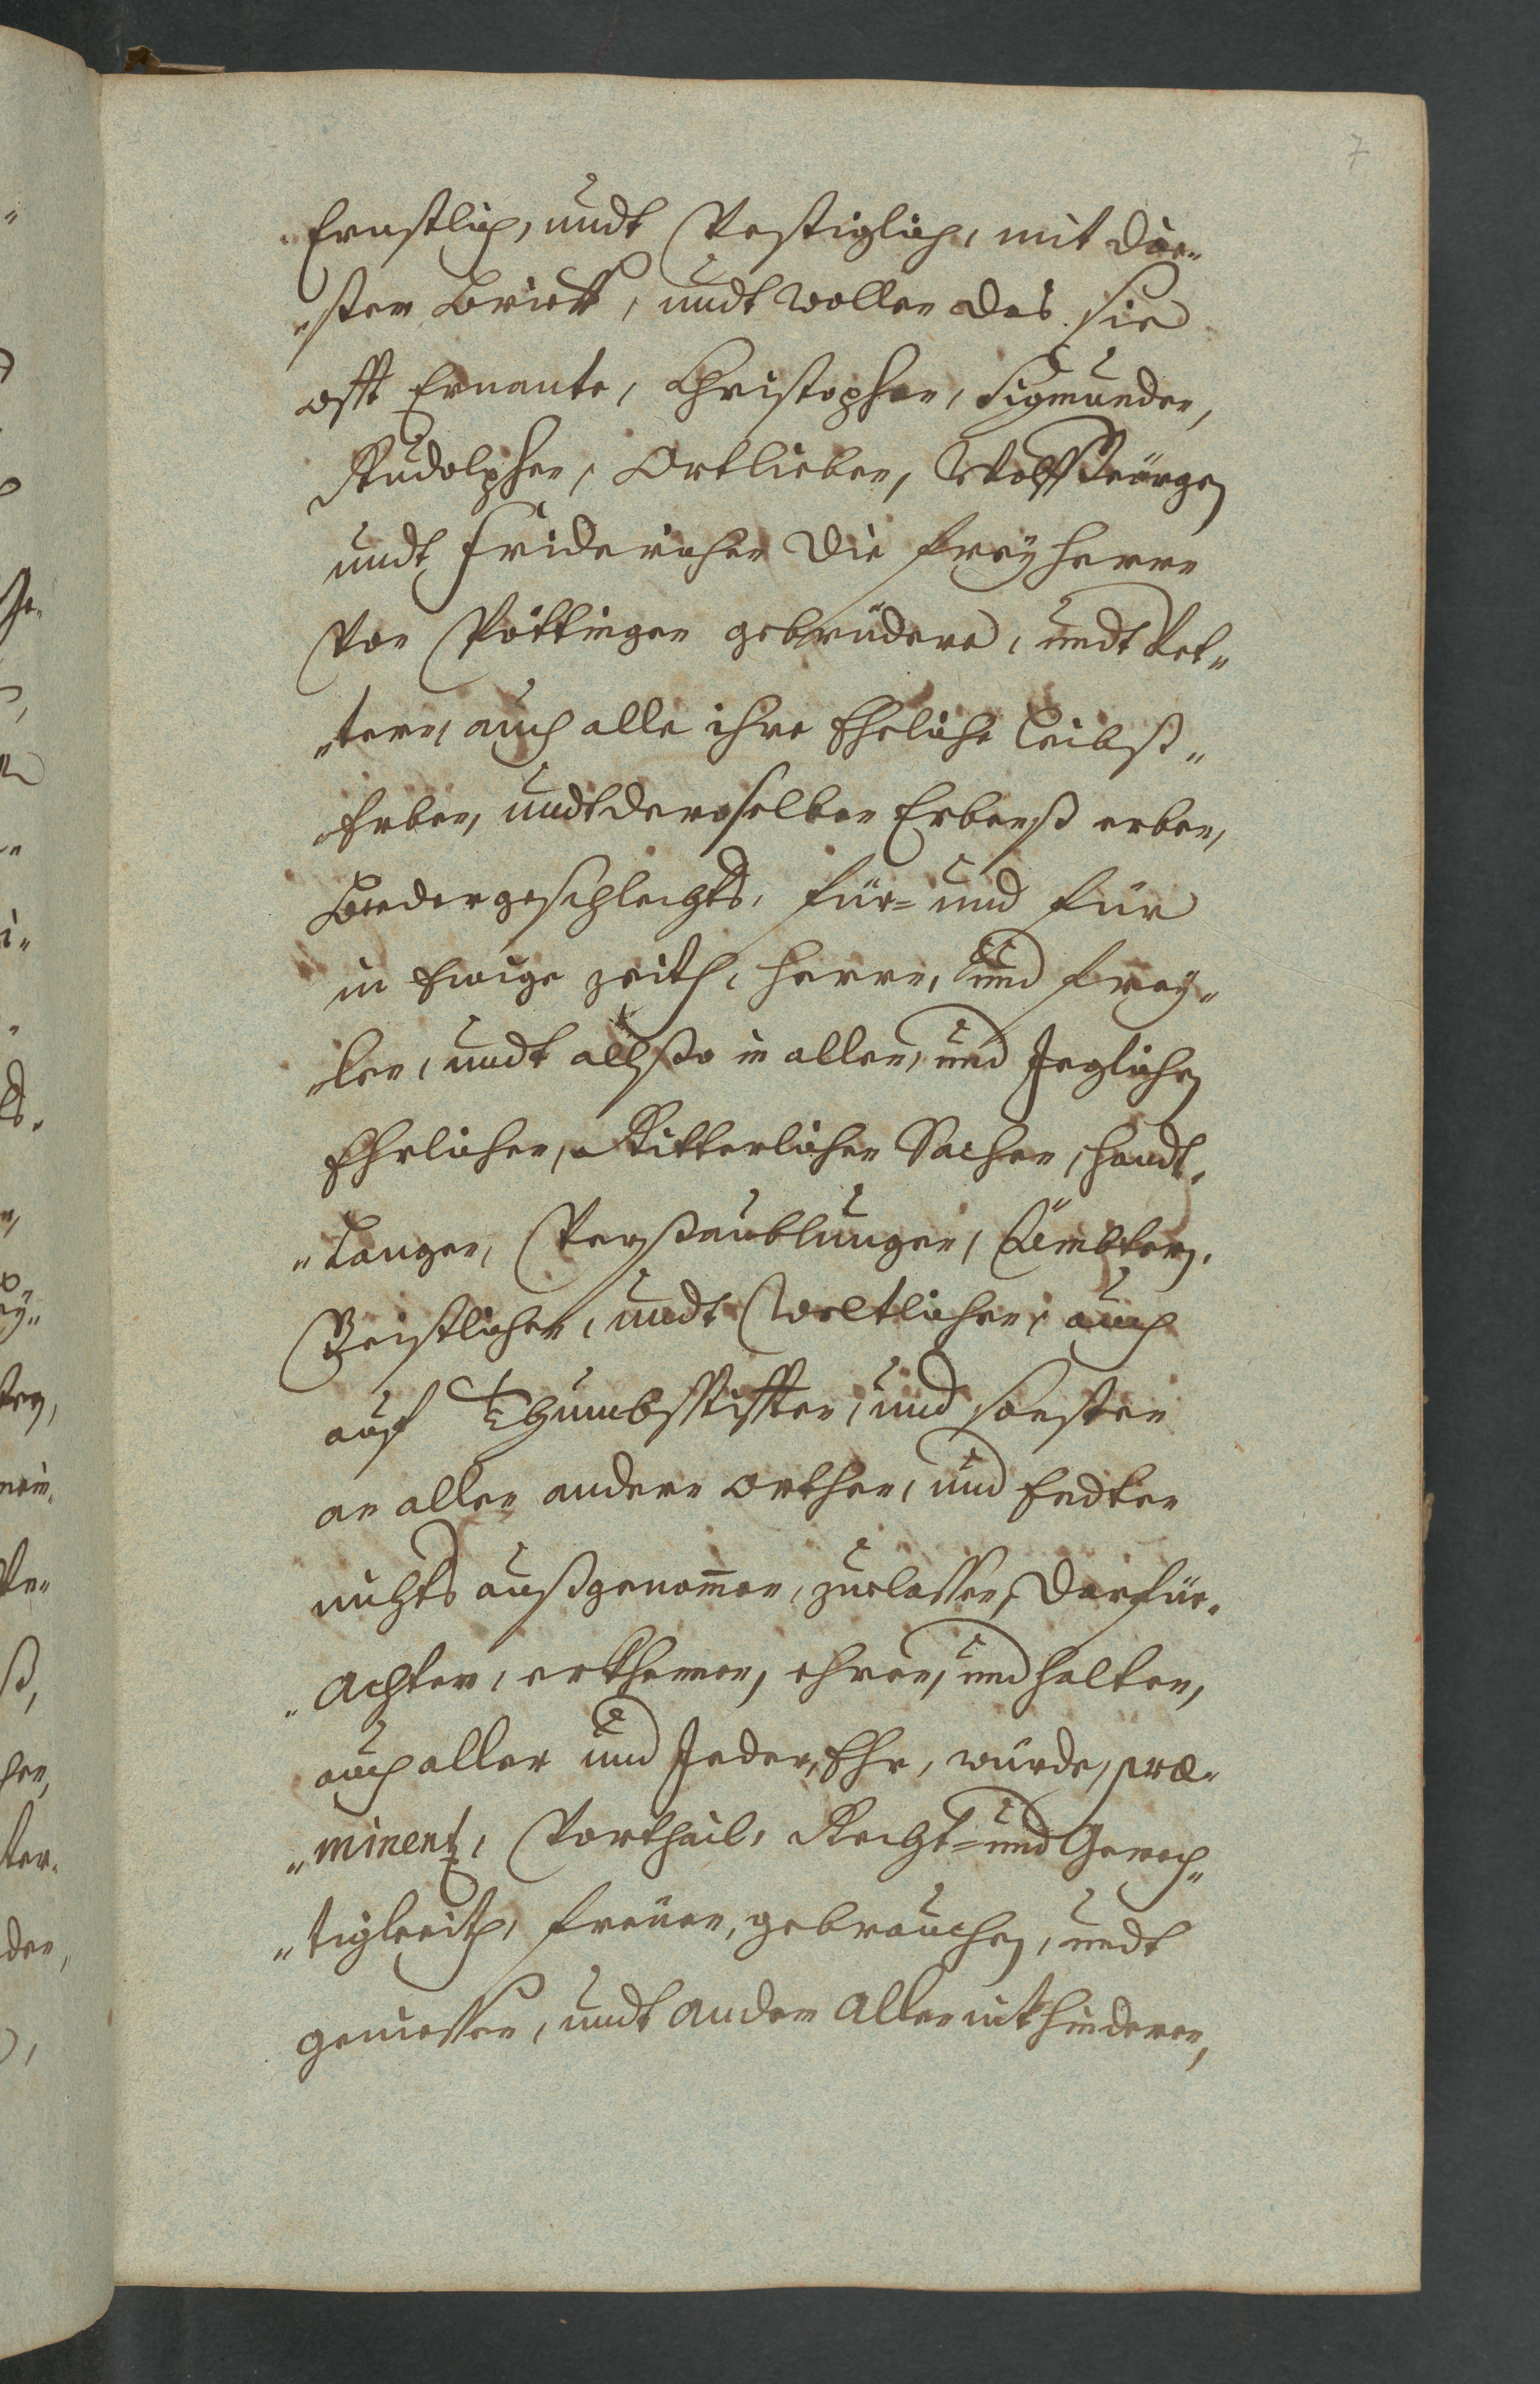 7
Ernstlich, undt Vestiglich, mit die„
„sem Brieff, undt wollen das sie
offt Ernante, Christophen, Sigmunden,
Rudolphen, Ortlieben, Wolff Geörgen
undt Friderichen die Freyherrn
Von Pöttingen gebrüdere, undt Vet„
„tern, auch alle ihre Eheliche Leibß„
„Erben, undt deroselben Erbenß erben,
Beeder geschlechts, für= und für
in Ewige zeith, Herrn, und Frey„
„len, undt allso in allen, und Jeglichen
Ehrlichen, Ritterlichen Sachen, Handt„
„Lungen, Versamblungen, Ämbtern,
Geistlichen, undt Weltlichen, auch
auf Thumbstifften, und sonsten
an allen andern orthen, und Endten
nichts außgenom̅en, zuelassen, darfür„
„Achten, erkhennen, ehren, und halten,
auch aller und Jeder, Ehr, würde, præ„
„minentz, Vortheil, Recht= und Gerech„
„tigkeith, freüen, gebrauchen, undt
geniessen, undt andem allen nit hinderen,